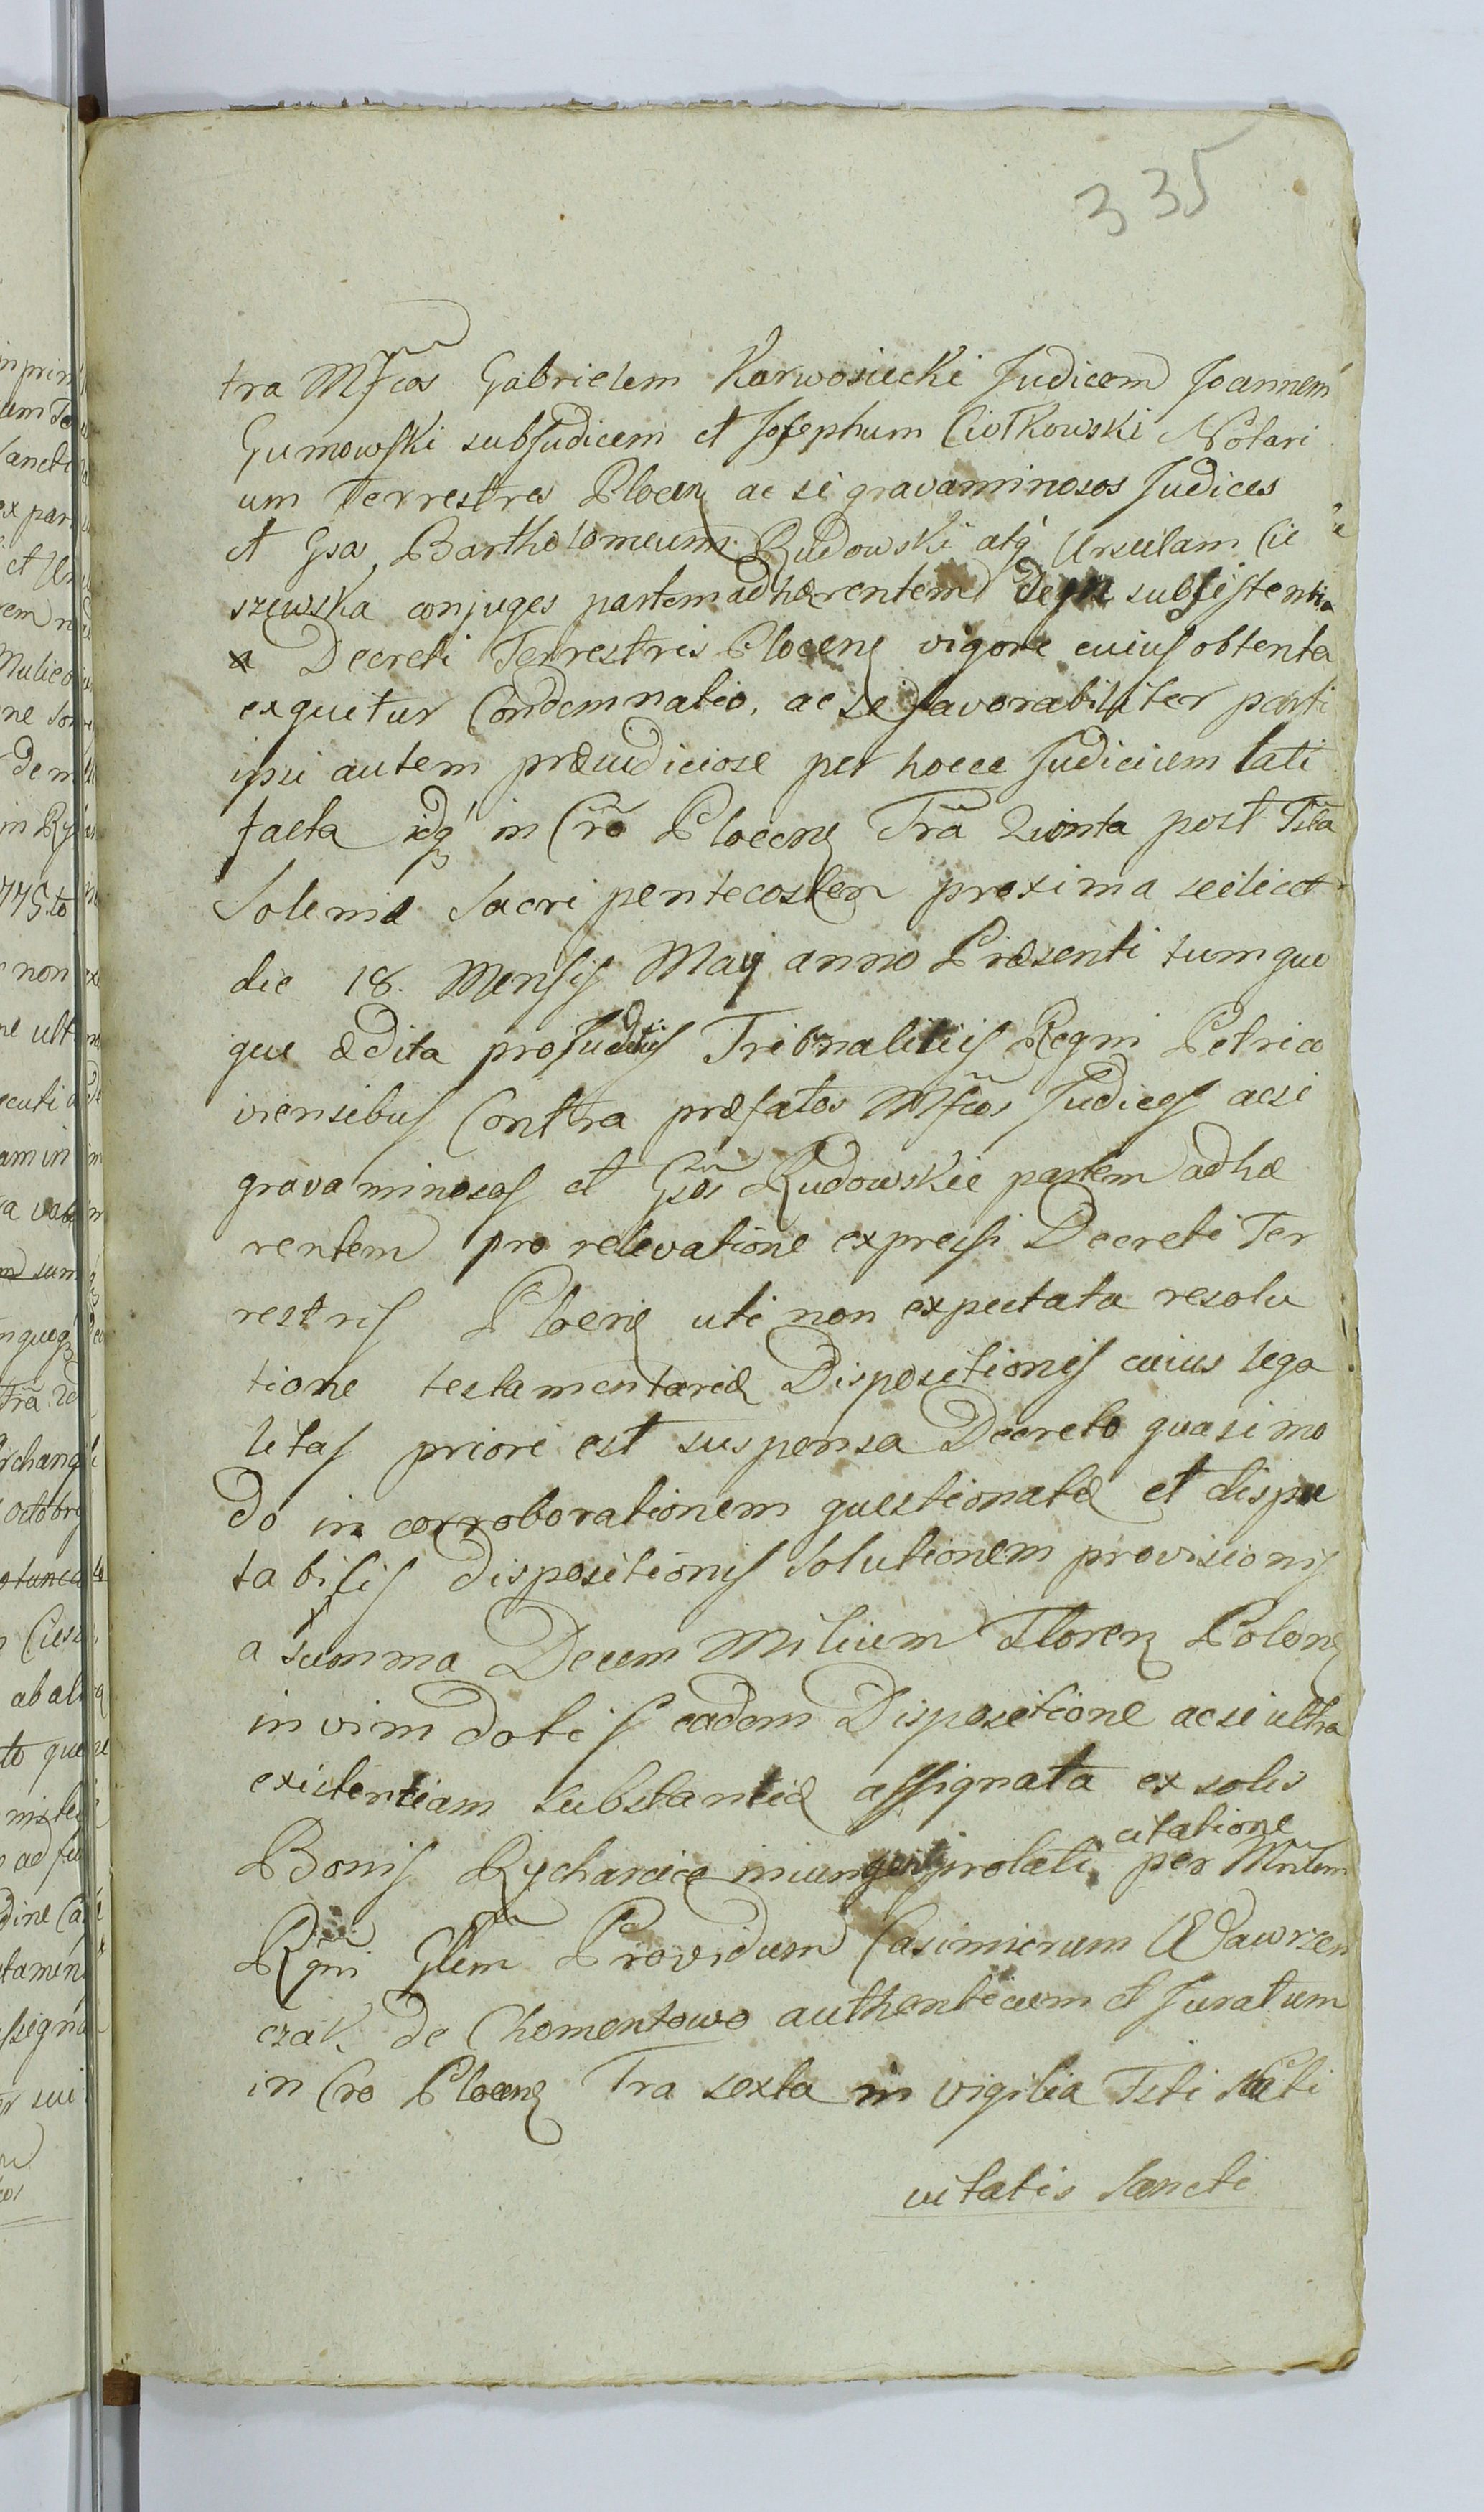 335
tra Mfcos Gabrielem Karwosiecki Judicem Joannem
Gumowski subJudicem et Josephum Ciołkowski Notari
um Terrestres Plocen ac si gravaminosos Judices
et Gsos Bartholomeum Rudowski atq Ursulam Cie
szewska conjuges partem adhærentem subsistentia
Decreti Terrestris Plocens vigore cuius obtenta
exquetur Condemnatio, ac si favorabiliter parti
ipsi autem præiudiciose per hocce Judicium lati
facta idq in Cro Plocens Tra Quinta post Fsta
Solenia Sacri pentecostes proxima scilicet
die 18. Mensis Maij anno Præsenti tumque
que ædita pro Judiciis Tribnalitiis Regni Petrico
viensibus Contra præfatos Mfcos Judices acsi
gravaminosos et Gsos Rudowskie partem adhæ
rentem pro relevatione expressi Decreti Ter
restris Plocens uti non expectata resolu
tione testamentariæ Dispositionis cuius lega
litas priori est suspensa Decreto quasi mo
do in corroborationem questionatæ et dispu
tabilis dispositionis solutionem provisionis
a summa Decem Milium Floren Polon
in vim dotis eadem Dispositione acsi ultra
existentiam substantiæ assignata ex solis
Bonis Rycharcice prolati citatione per Mntem
Rgni Glem Providum Casimirum Wawrzen
czak de Chomentowo authenticum et Juratum
in Cro Plocens Tra sexta in vigilia Fsti Nati
vitatis Sancti